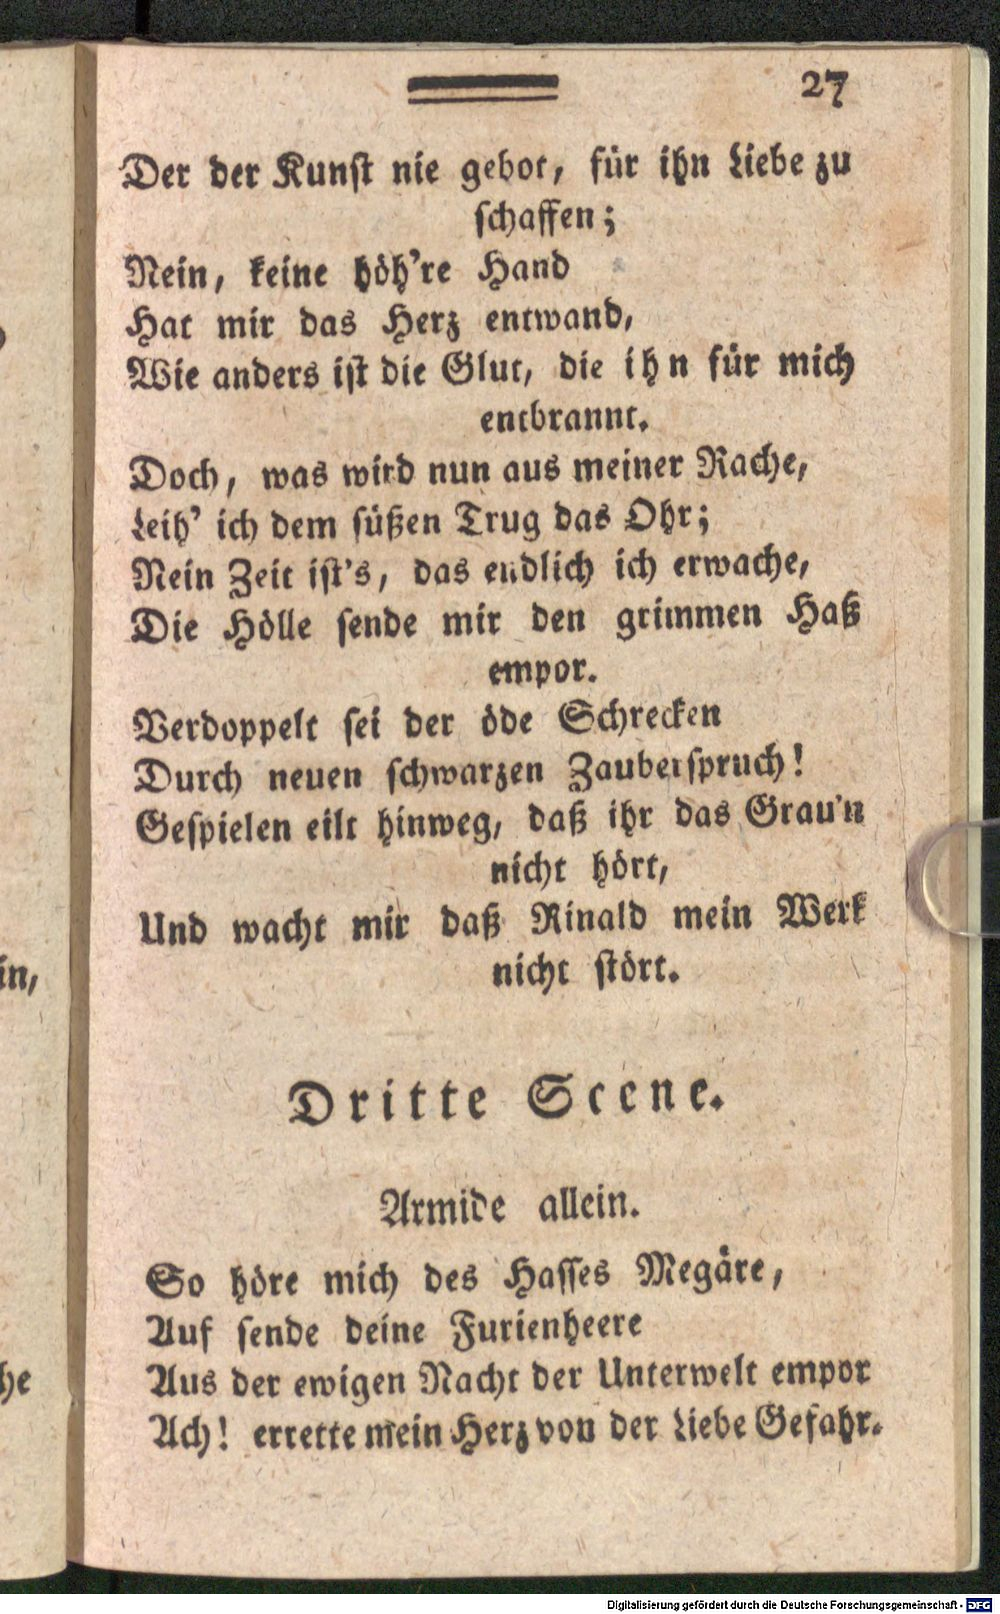 27
Der der Kunst nie gebot, für ihn Liebe zu
schaffen;
Nein, keine höh're Hand
Hat mir das Herz entwand,
Wie anders ist die Glut, die ihn für mich
entbrannt.
Doch, was wird nun aus meiner Rache,
Leih' ich dem süßen Trug das Ohr;
Nein Zeit ist's, das endlich ich erwache,
Die Hölle sende mir den grimmen Haß
empor.
Verdoppelt sei der öde Schrecken
Durch neuen schwarzen Zauberspruch!
Gespielen eilt hinweg, daß ihr das Grau'n
nicht hört,
Und wacht mir daß Rinald mein Werk
nicht stört.
Dritte Scene.
Armide allein.
So höre mich des Hasses Megäre,
Auf sende deine Furienheere
Aus der ewigen Nacht der Unterwelt empor
Ach! errette mein Herz von der Liebe Gefahr.
in,
he
Digitalisierung gefördert durch die Deutsche Forschungsgemeinschaft - DFG